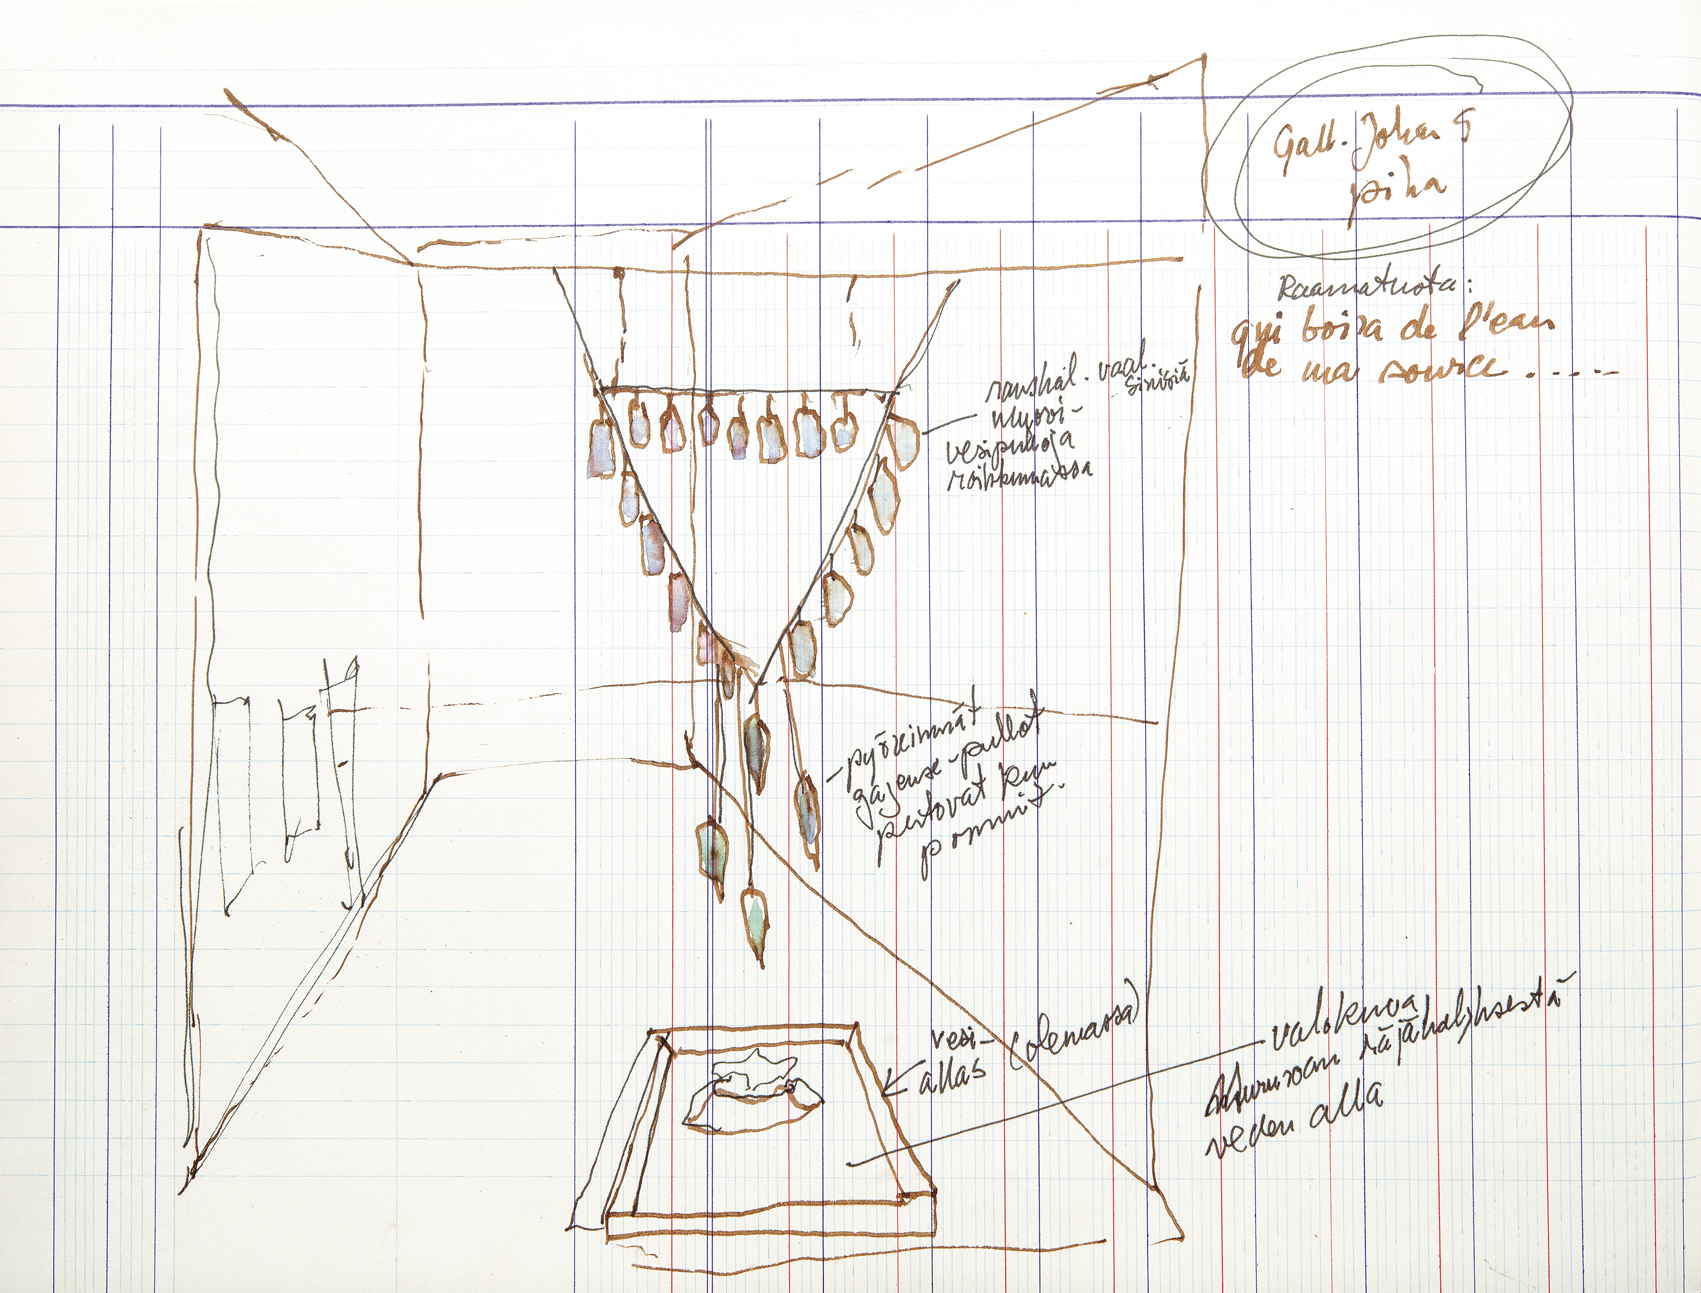 Gall. Johan S
piha
Raamatusta:
qui boira de l'eau
de ma source .....
ranskal. vaal.
sinisiä
muovi-
vesipulloja
roikkumassa
- pyöreimmät
gazeuse-pullot
putovat kuin
pommit.
vesi- (olemassa)
allas
valokuva
Mururoan räjähdyksestä
veden alla